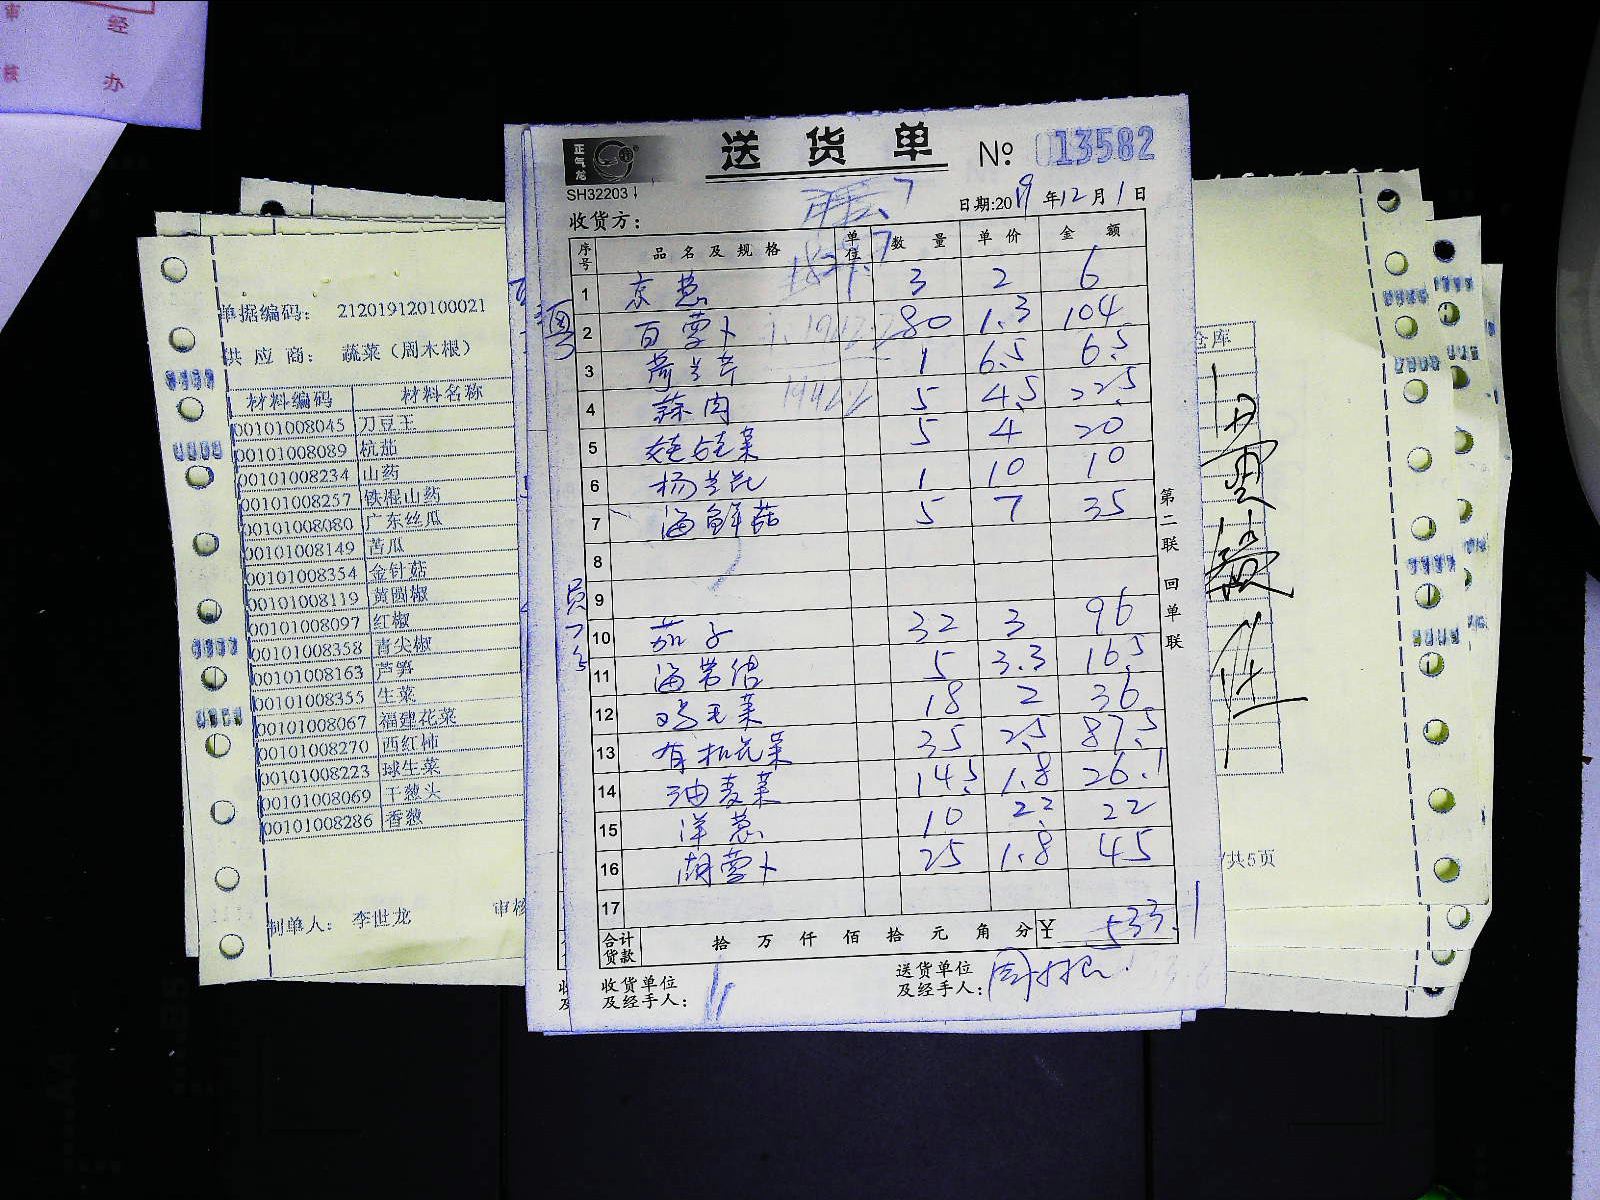 经
办
审
核
正气龙
SH32203
送货单
№ 013582
日期:2019年12月1日
收货方:
序号 品名及规格 单位 数量 单价 金额
1 京葱 3 2 6
2 白萝卜 80 1.3 104
3 荷兰芹 1 6.5 6.5
4 蒜肉 5 4.5 22.5
5 娃娃菜 5 4 20
6 杨兰花 1 10 10
7 海鲜菇 5 7 35
8
9
10 茄子 32 3 96
11 海带结 5 3.3 16.5
12 鸡毛菜 18 2 36
13 有机花菜 35 2.5 87.5
14 油麦菜 14.5 1.8 26.1
15 洋葱 10 2.2 22
16 胡萝卜 25 1.8 45
17
合计货款 拾万仟佰拾元角分 ¥ 533.1
收货单位及经手人:
送货单位及经手人: 周木根
第二联 回单联
单据编码: 212019120100021
供应商: 蔬菜(周木根)
材料编码 材料名称
00101008045 刀豆王
00101008089 杭茄
00101008234 山药
00101008257 铁棍山药
00101008080 广东丝瓜
00101008149 苦瓜
00101008354 金针菇
00101008119 黄圆椒
00101008097 红椒
00101008358 青尖椒
00101008163 芦笋
00101008355 生菜
00101008067 福建花菜
00101008270 西红柿
00101008223 球生菜
00101008069 干葱头
00101008286 香葱
制单人: 李世龙
审核
仓库
/共5页